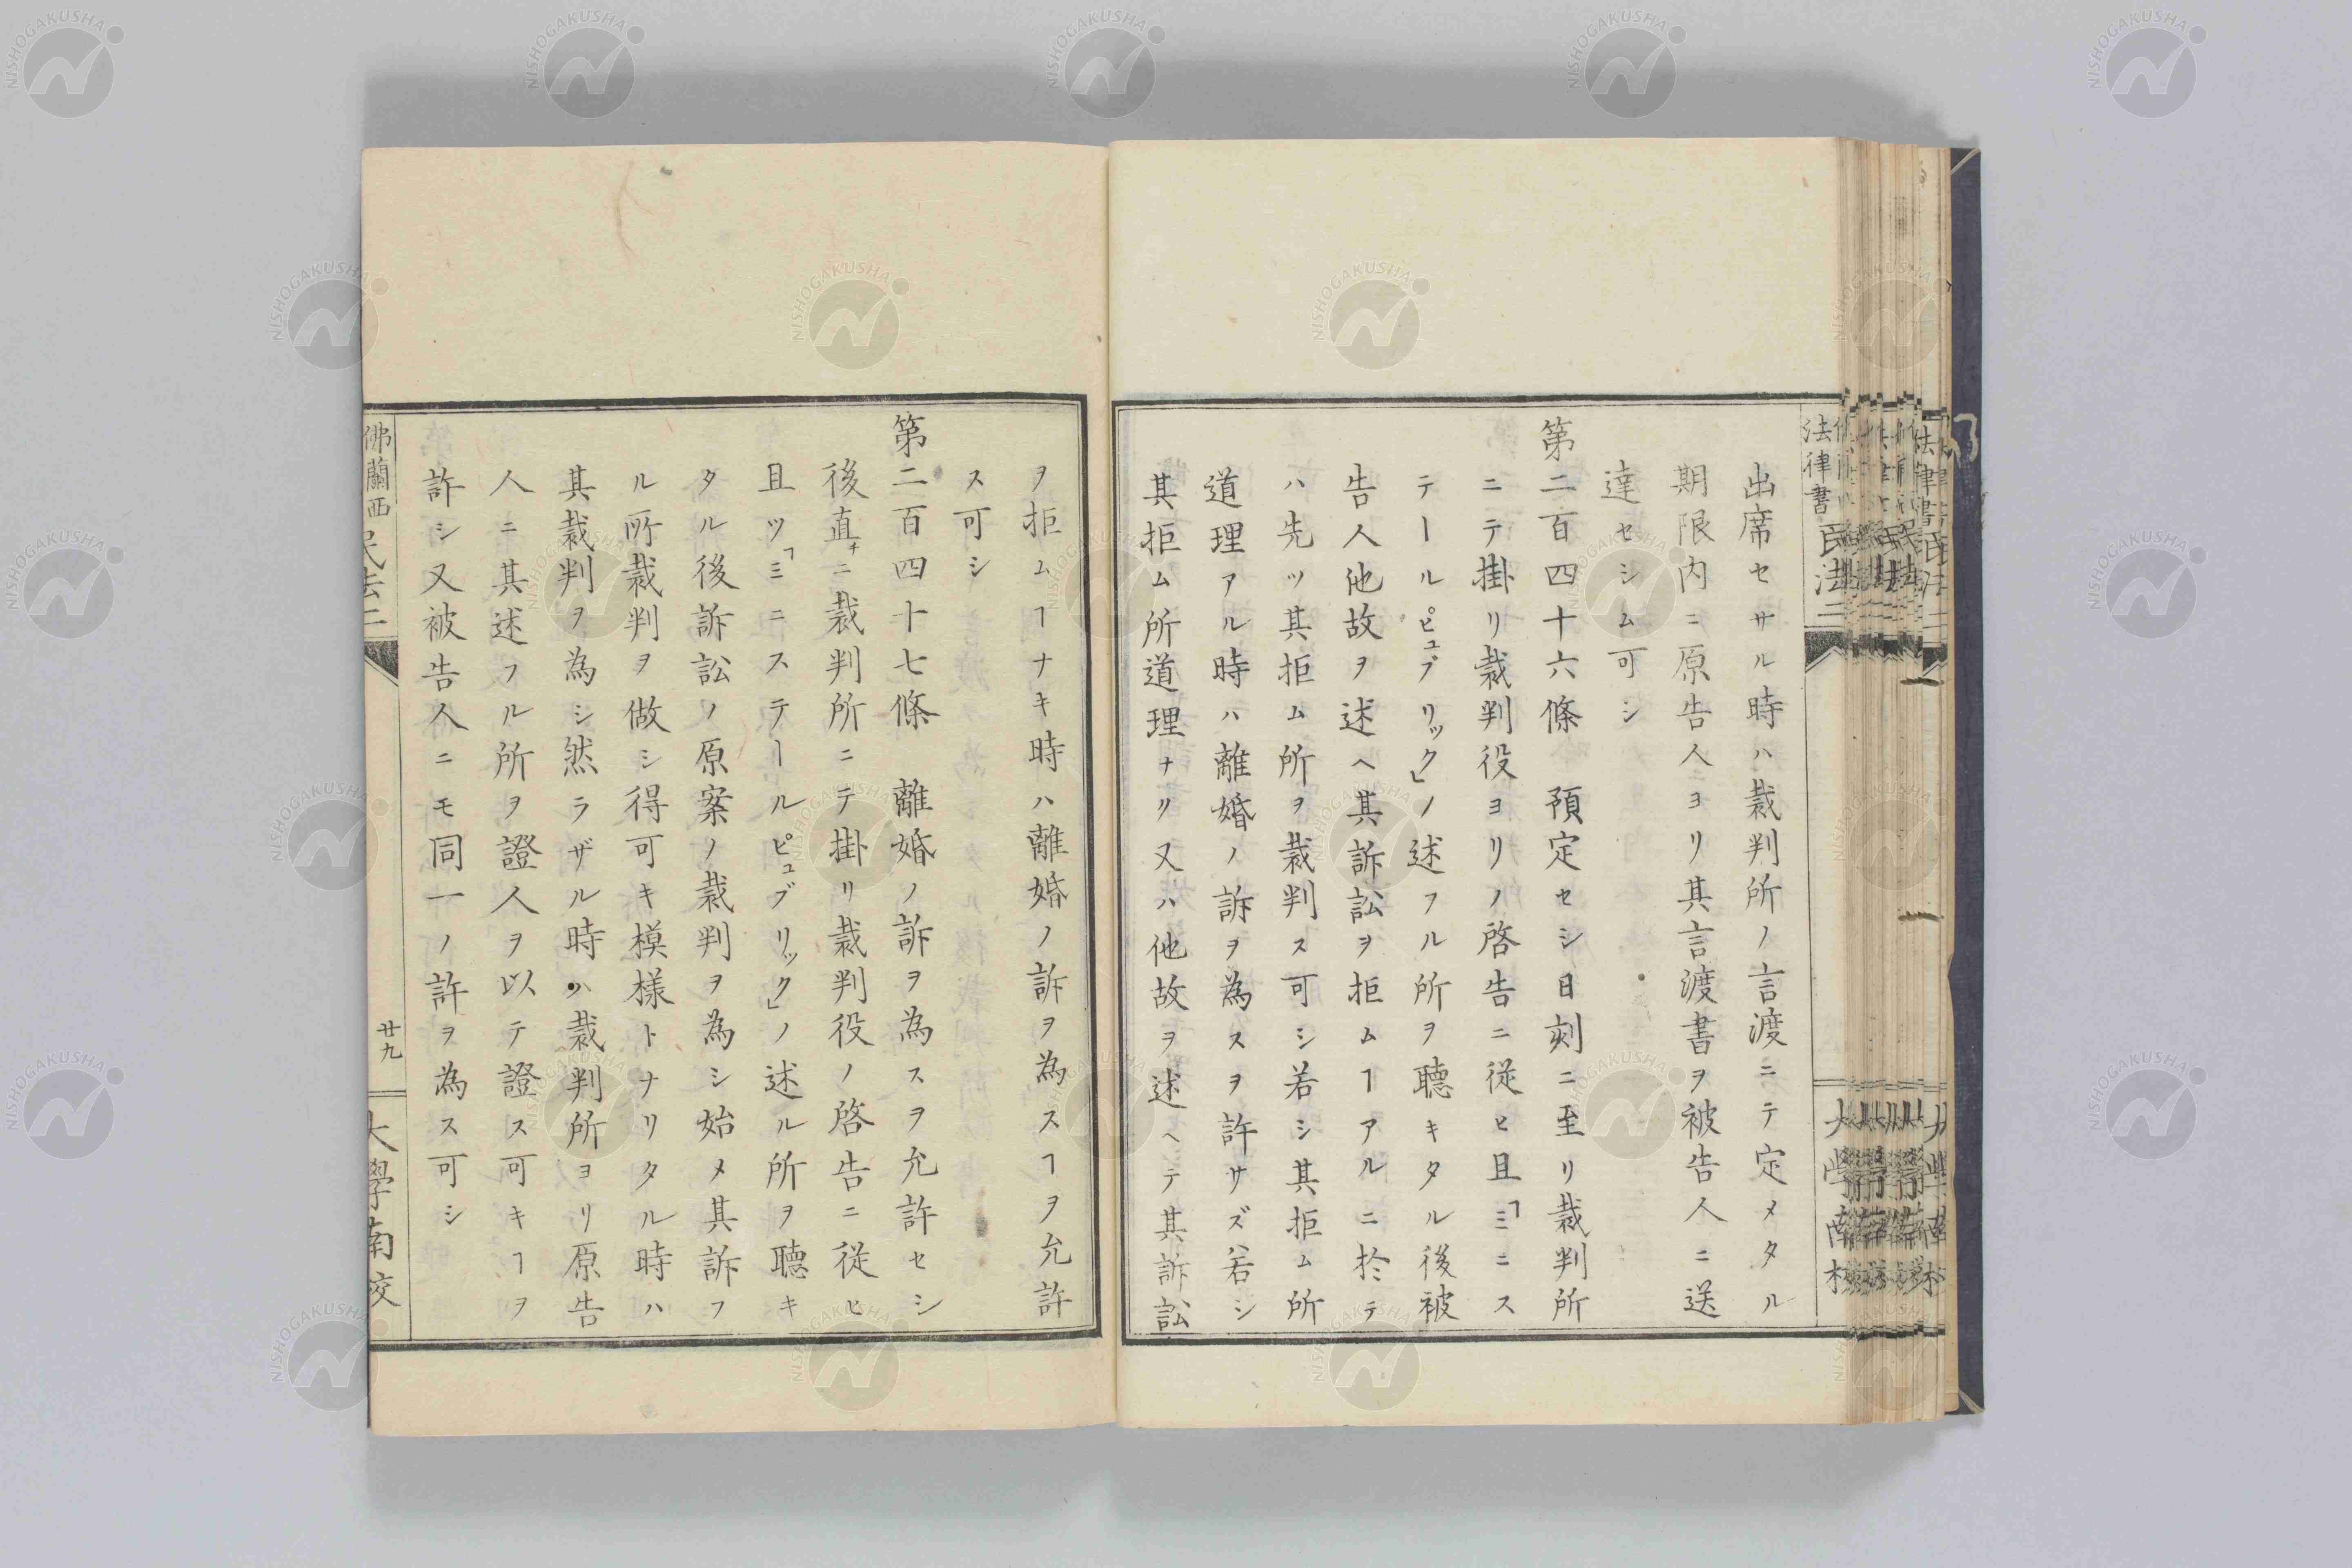 法律書 民法二
出席セサル時ハ裁判所ノ言渡ニテ定メタル
期限内ニ原告人ヨリ其言渡書ヲ被告人ニ送
達セシム可シ
第二百四十六條 預定セシ日刻ニ至リ裁判所
ニテ掛リ裁判役ヨリノ啓告ニ従ヒ且「ミニス
テールピュブリック」ノ述フル所ヲ聴キタル後被
告人他故ヲ述ヘ其訴訟ヲ拒ムヿアルニ於テ
ハ先ツ其拒ム所ヲ裁判ス可シ若シ其拒ム所
道理アル時ハ離婚ノ訴ヲ為スヲ許サズ若シ
其拒ム所道理ナリ又ハ他故ヲ述ヘテ其訴訟
ヲ拒ムヿナキ時ハ離婚ノ訴ヲ為スヿヲ允許
ス可シ
第二百四十七條 離婚ノ訴ヲ為スヲ允許セシ
後直チニ裁判所ニテ掛リ裁判役ノ啓告ニ従ヒ
且ツ「ミニステールピュブリック」ノ述ル所ヲ聴キ
タル後訴訟ノ原案ノ裁判ヲ為シ始メ其訴フ
ル所裁判ヲ做シ得可キ模様トナリタル時ハ
其裁判ヲ為シ然ラザル時ハ裁判所ヨリ原告
人ニ其述フル所ヲ證人ヲ以テ證ス可キヿヲ
許シ又被告人ニモ同一ノ許ヲ為ス可シ
佛蘭西 民法二 廿九 大學南校
NISHOGAKUSHA